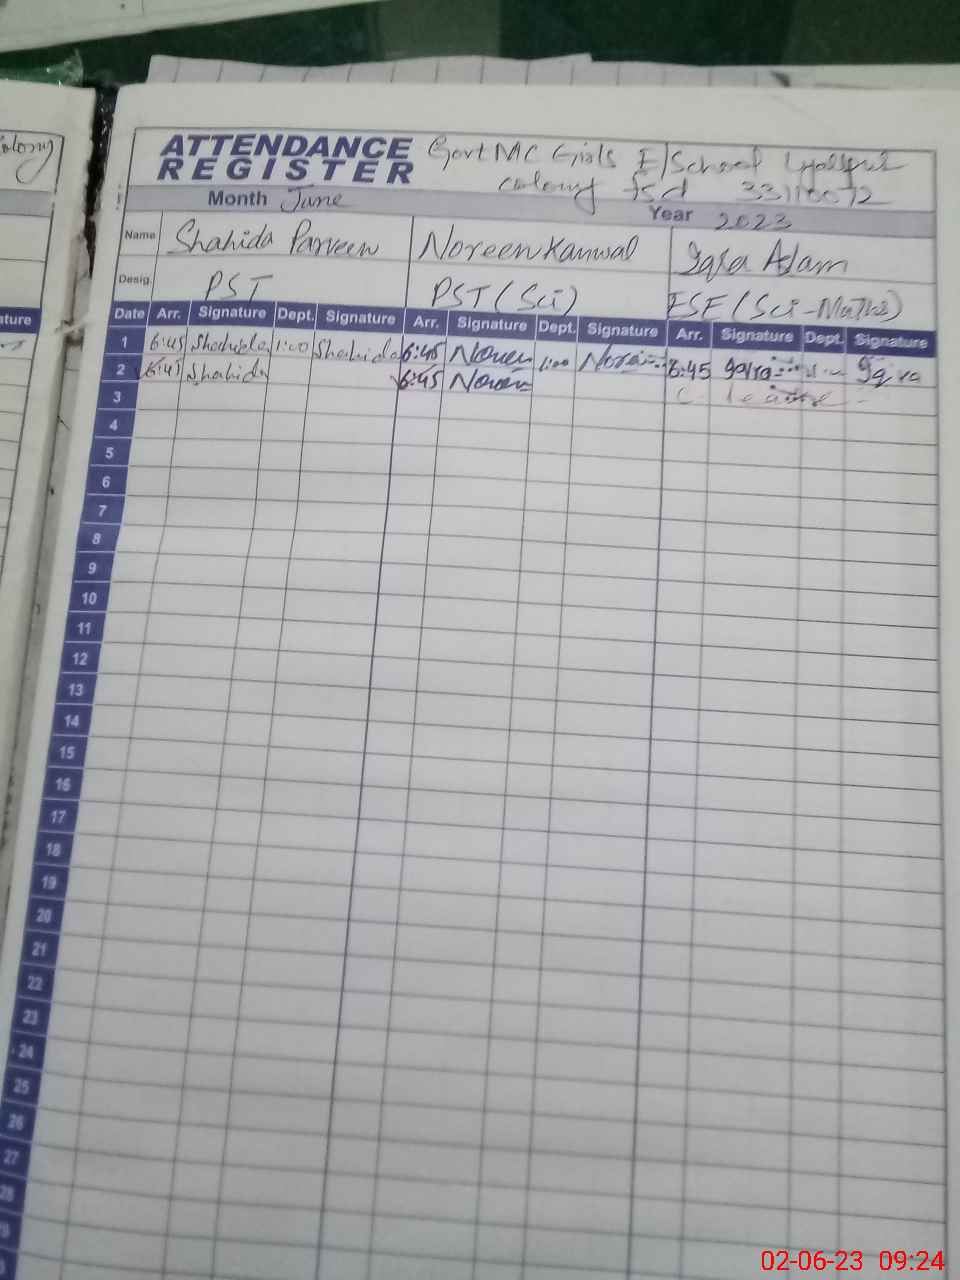 ATTENDANCE REGISTER
Govt MC Girls E/School Lyallpur
colony fsd 33110072
Month June Year 2023
Name Shahida Parveen Noreen Kanwal Iqra Aslam
Desig. PST PST (Sci) ESE (Sci-Maths)
Date Arr. Signature Dept. Signature Arr. Signature Dept. Signature Arr. Signature Dept. Signature
1 6:45 Shahida 1:00 Shahida 6:45 Noreen 1:00 Noreen 6:45 Iqra Iqra
2 6:45 Shahida 6:45 Noreen C. leave
3
4
5
6
7
8
9
10
11
12
13
14
15
16
17
18
19
20
21
22
23
24
25
26
27
28
02-06-23 09:24